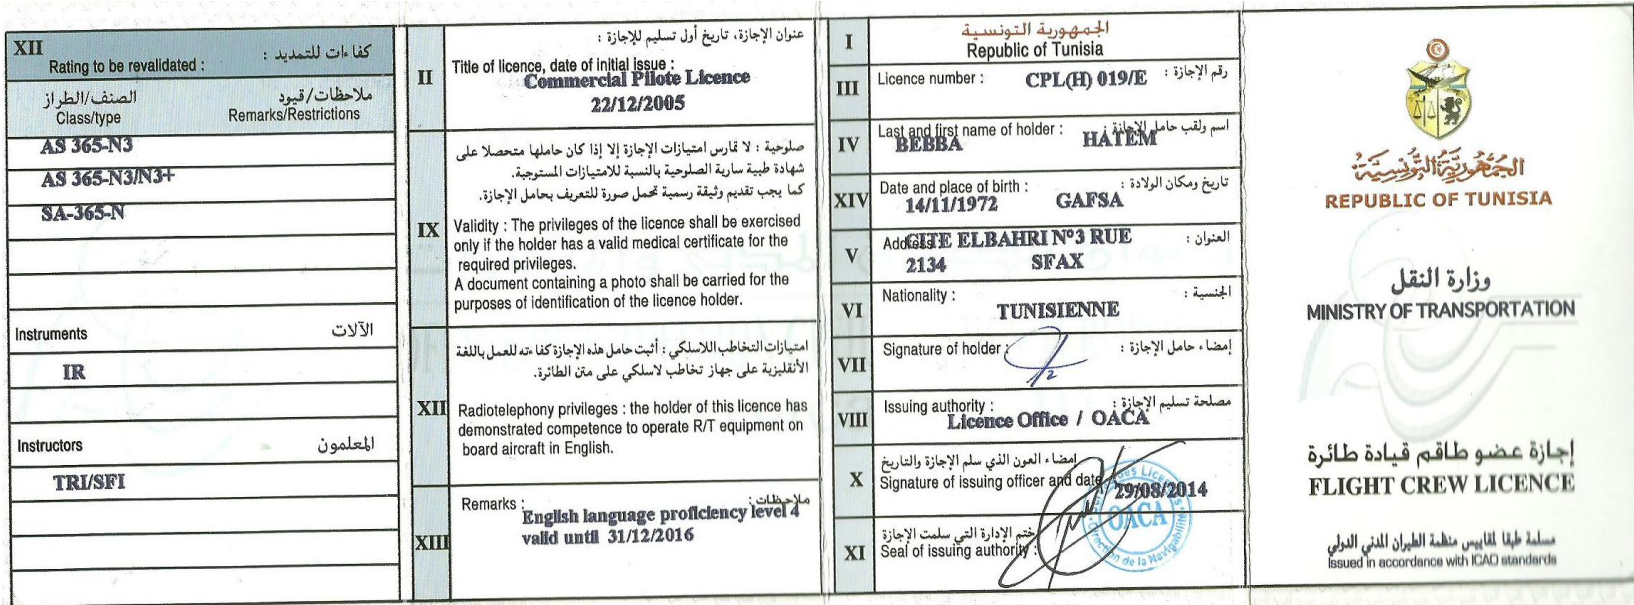 XII
كفاءات للتمديد :
Rating to be revalidated :
الصنف/الطراز
Class/type
ملاحظات/قيود
Remarks/Restrictions
AS 365-N3
AS 365-N3/N3+
SA-365-N
Instruments
الآلات
IR
Instructors
المعلمون
TRI/SFI
II
عنوان الإجازة، تاريخ أول تسليم للإجازة :
Title of licence, date of initial issue :
Commercial Pilote Licence
22/12/2005
IX
صلوحية : لا تمارس امتيازات الإجازة إلا إذا كان حاملها متحصلا على
شهادة طبية سارية الصلوحية بالنسبة للامتيازات المستوجبة.
كما يجب تقديم وثيقة رسمية تحمل صورة للتعريف بحامل الإجازة.
Validity : The privileges of the licence shall be exercised
only if the holder has a valid medical certificate for the
required privileges.
A document containing a photo shall be carried for the
purposes of identification of the licence holder.
XII
امتيازات التخاطب اللاسلكي : أثبت حامل هذه الإجازة كفاءته للعمل باللغة
الأنقليزية على جهاز تخاطب لاسلكي على متن الطائرة.
Radiotelephony privileges : the holder of this licence has
demonstrated competence to operate R/T equipment on
board aircraft in English.
XIII
Remarks :
ملاحظات :
English language proficiency level 4
valid until 31/12/2016
I
الجمهورية التونسية
Republic of Tunisia
III
Licence number :
CPL(H) 019/E
رقم الإجازة :
IV
Last and first name of holder :
اسم ولقب حامل الإجازة :
BEBBA HATEM
XIV
Date and place of birth :
تاريخ ومكان الولادة :
14/11/1972 GAFSA
V
Address :
العنوان :
CITE ELBAHRI N°3 RUE
2134 SFAX
VI
Nationality :
الجنسية :
TUNISIENNE
VII
Signature of holder :
إمضاء حامل الإجازة :
VIII
Issuing authority :
مصلحة تسليم الإجازة :
Licence Office / OACA
X
إمضاء العون الذي سلم الإجازة والتاريخ
Signature of issuing officer and date
29/08/2014
XI
ختم الإدارة التي سلمت الإجازة
Seal of issuing authority :
OACA
الجمهورية التونسية
REPUBLIC OF TUNISIA
وزارة النقل
MINISTRY OF TRANSPORTATION
إجازة عضو طاقم قيادة طائرة
FLIGHT CREW LICENCE
مسلمة طبقا لمقاييس منظمة الطيران المدني الدولي
Issued in accordance with ICAO standards